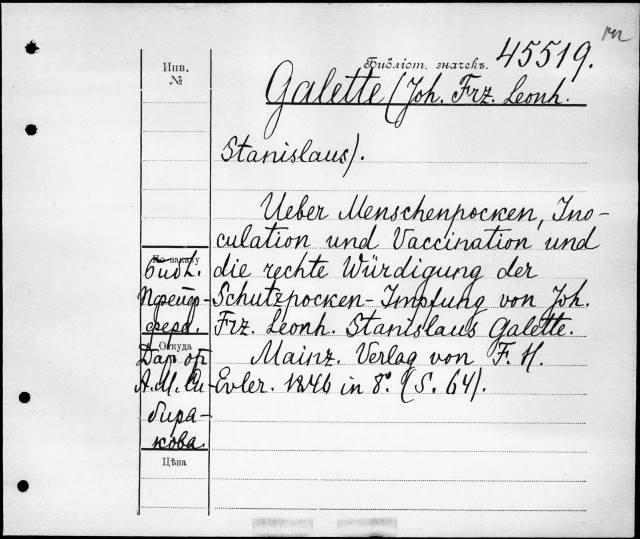 Библіот. значекъ. 45519.
Инв.
№
Galette (Joh. Frz. Leonh.
Stanislaus).
Ueber Menschenpocken, Ino-
culation und Vaccination und
die rechte Würdigung der
Schutzpocken-Impfung von Joh.
Frz. Leonh. Stanislaus Galette.
Mainz. Verlag von F. H.
Evler. 1846 in 8°. (S. 64).
По заказу
Библ.
Пфейф-
фера.
Откуда
Дар от
А. М. Си-
биря-
кова.
Цѣна